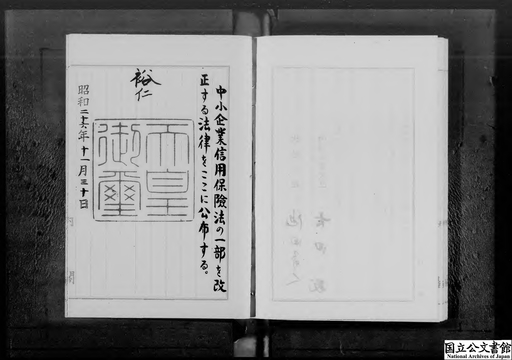 中小企業信用保險法の一部を改
正する法律をここに公布する。
裕仁
天皇
御璽
昭和二十六年十一月三十日
内閣
国立公文書館
National Archives of Japan